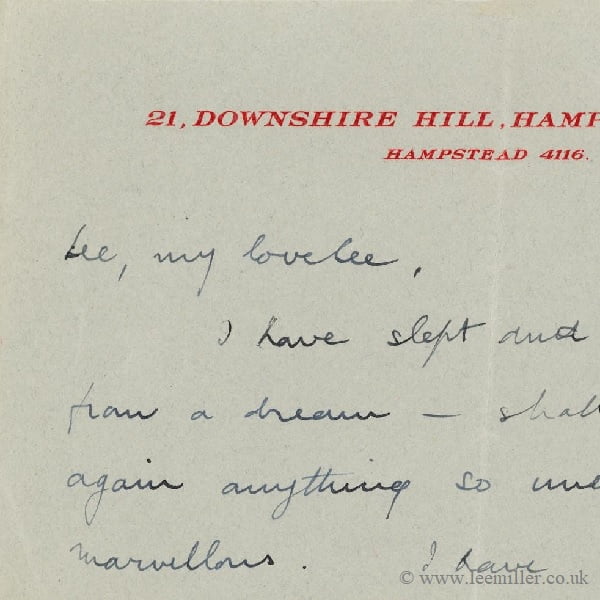 21, DOWNSHIRE HILL, HAMP
HAMPSTEAD 4116.
Lee, my lovelee,
I have slept and
from a dream — shall
again anything so
marvellous. I have
© www.leemiller.co.uk